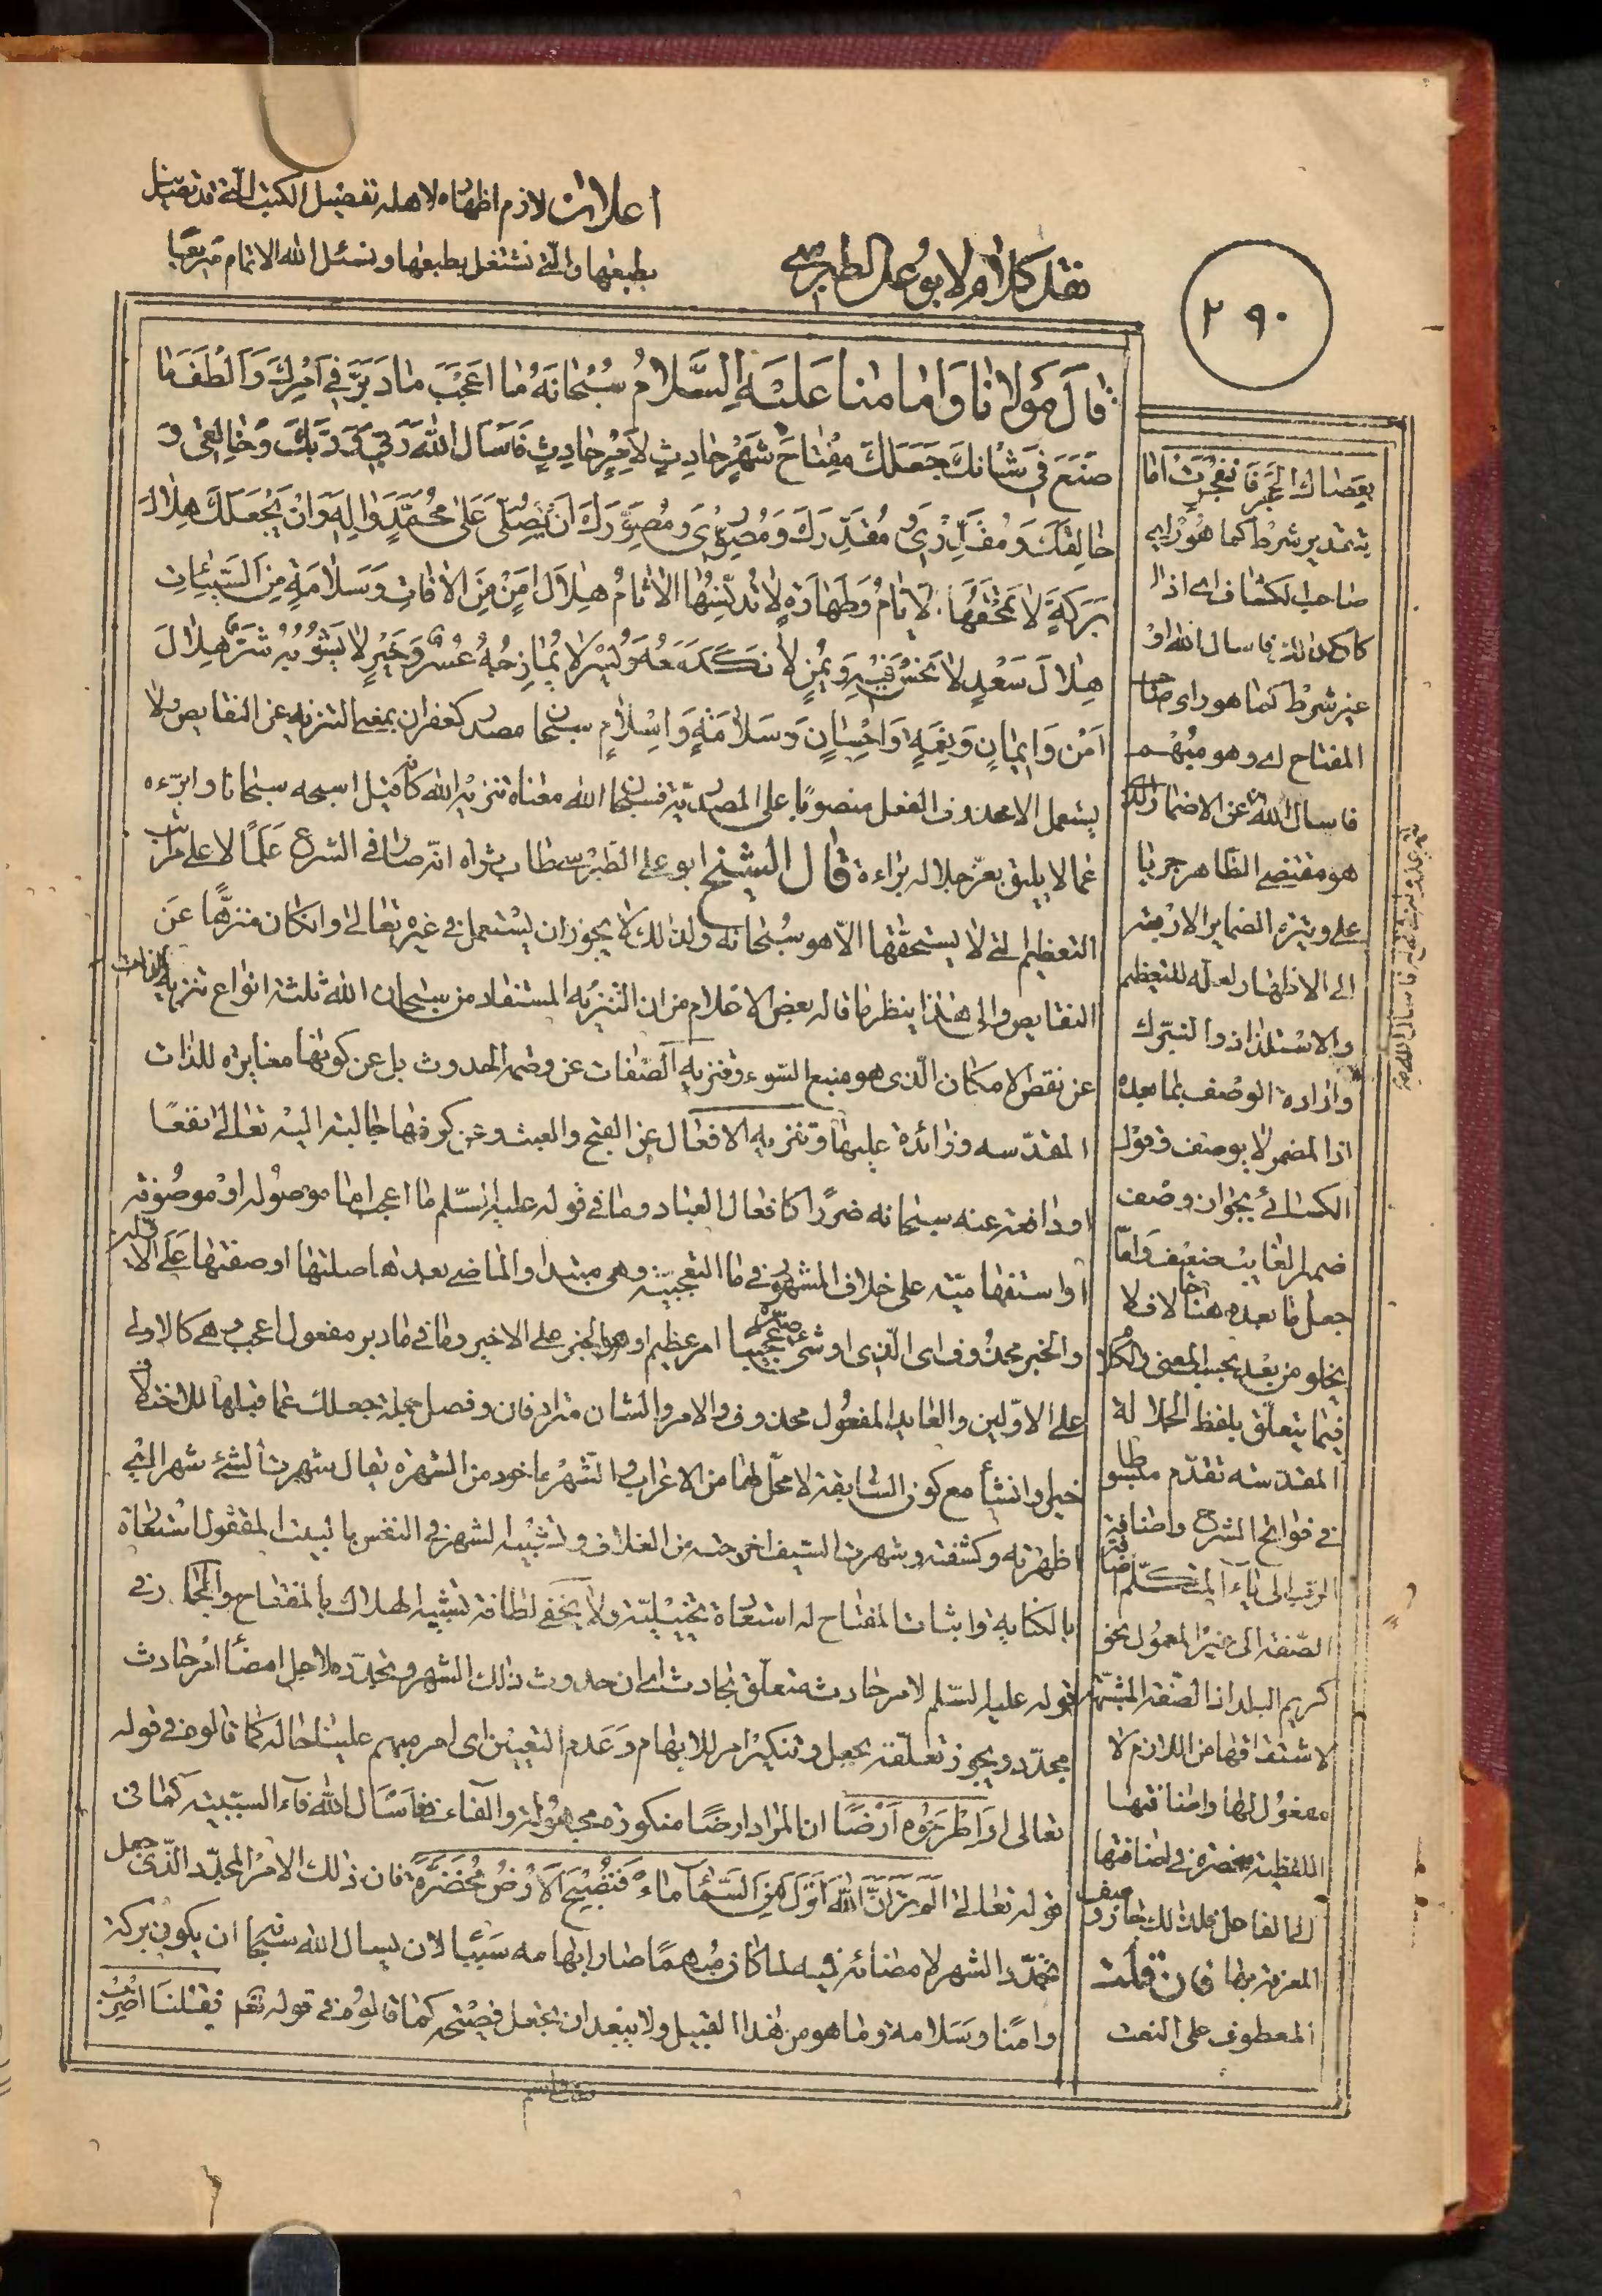 اعلان لازم اظهاره لاهله تفصيل الكتب الّتى قد نصّل
بطبعها والّتى نشتغل بطبعها ونسئل الله الاتمام
نقل كلام لابو على الطبرسى
٢٩٠
قالَ مَوْلانا وَامامنا عَلَيْهِ السَّلامُ سُبْحانَهُ ما اَعْجَبَ ما دَبَّرَ فى اَمْرِكَ وَاَلْطَفَ ما
صَنَعَ فى شَاْنِكَ جَعَلَكَ مِفْتاحَ شَهْرٍ حادِثٍ لِاَمْرٍ حادِثٍ فَاَسْاَلُ اللهَ رَبّى وَرَبَّكَ وَخالِقى وَ
خالِقَكَ وَمُقَدِّرى وَمُقَدِّرَكَ وَمُصَوِّرى وَمُصَوِّرَكَ اَنْ يُصَلِّىَ عَلى مُحَمَّدٍ وَالِهِ وَاَنْ يَجْعَلَكَ هِلالَ
بَرَكَةٍ لا تَمْحَقُهَا الاَيّامُ وَطَهارَةٍ لا تُدَنِّسُهَا الاثامُ هِلالَ اَمْنٍ مِنَ الافاتِ وَسَلامَةٍ مِنَ السَّيِّئاتِ
هِلالَ سَعْدٍ لا نَحْسَ فيهِ وَيُمْنٍ لا نَكَدَ مَعَهُ وَيُسْرٍ لا يُمازِجُهُ عُسْرٌ وَخَيْرٍ لا يَشُوبُهُ شَرٌّ هِلالَ
اَمْنٍ وَايمانٍ وَنِعْمَةٍ وَاِحْسانٍ وَسَلامَةٍ وَاِسْلامٍ سبحان مصدر كغفران بمعنى التنزيه عن النقايص ولا
يستعمل الا محذوف الفعل منصوبًا على المصدريّة فسبحان الله معناه تنزيه الله كانّه قيل اسبحه سبحانا وابرّءه
عما لا يليق بعزّ جلاله براءة قال الشيخ ابو على الطبرسى طاب ثراه انّه صار فى الشرع علمًا لاعلى مراتب
التعظيم التى لا يستحقّها الاّ هو سبحانه ولذلك لا يجوز ان يستعمل فى غيره تعالى وان كان منزّهًا عن
النقايص والى هذا ينظر ما قاله بعض الاعلام من ان التنزيه المستفاد من سبحان الله ثلثة انواع تنزيه الذات
عن نقص الامكان الّذى هو منبع السّوء وتنزيه الصّفات عن وصمة الحدوث بل عن كونها مغايرة للذات
المقدّسه وزائدة عليها وتنزيه الافعال عن القبح والعبث وعن كونها جالبة اليه تعالى نفعًا
او دافعة عنه سبحانه ضررًا كافعال العباد وما فى قوله عليه السّلم ما اعجب اما موصوله او موصوفة
او استفهاميّه على خلاف المشهور فى ما التعجبيّة وهى مبتدا والماضى بعدها صلتها او صفتها على الاولين
والخبر محذوف اى الّذى او شئ صيّره عجيبا امر عظيم او هو الخبر على الاخير وما فى ما دبر مفعول اعجب وهى كالاولى
على الاوّلين والعايد المفعول محذوف والامر والشان مترادفان وفصل جملة جعلك عما قبلها للاختلاف
خبرا وانشأ مع كون السّابقة لا محلّ لها من الاعراب والشهر ماخود من الشهرة يقال شهرت الشئ شهرا اى
اظهرته وكشفته وشهرت السّيف اخرجته من الغلاف وتشبيه الشهر فى النفس بالبيت المقفول استعارة
بالكنايه واثبات المفتاح له استعارة تخييليّة ولا يخفى لطافة تشبيه الهلال بالمفتاح والجار فى
قوله عليه السّلم لامر حادث متعلّق بحادث اى ان حدوث ذلك الشهر وتجدّده لاجل امضاء امر حادث
مجدّد ويجوز تعلّقه بجعل وتنكير امر للابهام وعدم التعيين اى امر مبهم علينا حاله كما قالوه فى قوله
تعالى اَوِ اطْرَحُوهُ اَرْضًا ان المراد ارضًا منكورة مجهولة والفاء فى فاسال الله فاء السببيّة كما فى
قوله تعالى اَلَمْ تَرَ اَنَّ اللهَ اَنْزَلَ مِنَ السَّمآءِ ماءً فَتُصْبِحُ الاَرْضُ مُخْضَرَّةً فان ذلك الامر المجدّد الذى جعل
تجدّد الشهر لامضائه فيه لما كان مبهمًا صار ابهامه سببا لان يسال الله سبحانه ان يكون بركة
وامنًا وسلامة وما هو من هذا القبيل ولا يبعد ان تجعل فصيحة كما قالوه فى قوله تعم فقلنا اضرب
بعصاك الحجر فانفجرت اما
بتقدير شرط كما هو راى
صاحب الكشاف اى اذا
كان كذلك فاسال الله او
غير شرط كما هو راى صاحب
المفتاح اى وهو مبهم
فاسال الله عن الاضمار الّذى
هو مقتضى الظّاهر جريا
على وتيرة الضماير الاربعة
الى الاظهار لعلّه للتعظيم
والاستلذاذ والتبرك
وارادة الوصف بما بعده
اذ المضمر لا يوصف وقول
الكسائى بجواز وصف
ضمير الغايب ضعيف وامّا
جعل ما بعده هنا حالا فلا
يخلو من بعد بحسب المعنى والكلام
فيما يتعلّق بلفظ الجلالة
المقدسه تقدّم مبسوطا
فى فواتح الشرح واضافة
الرّب الى ياء المتكلّم اضافة
الصّفة الى غير المعمول نحو
كريم البلد اذ الصّفة المشبّهة
لاشتقاقها من اللازم لا
مفعول لها واضافتها
اللفظية منحصرة فى اضافتها
الى الفاعل فلذلك جاز وصف
المعرفة بها فان قلت
المعطوف على النعت